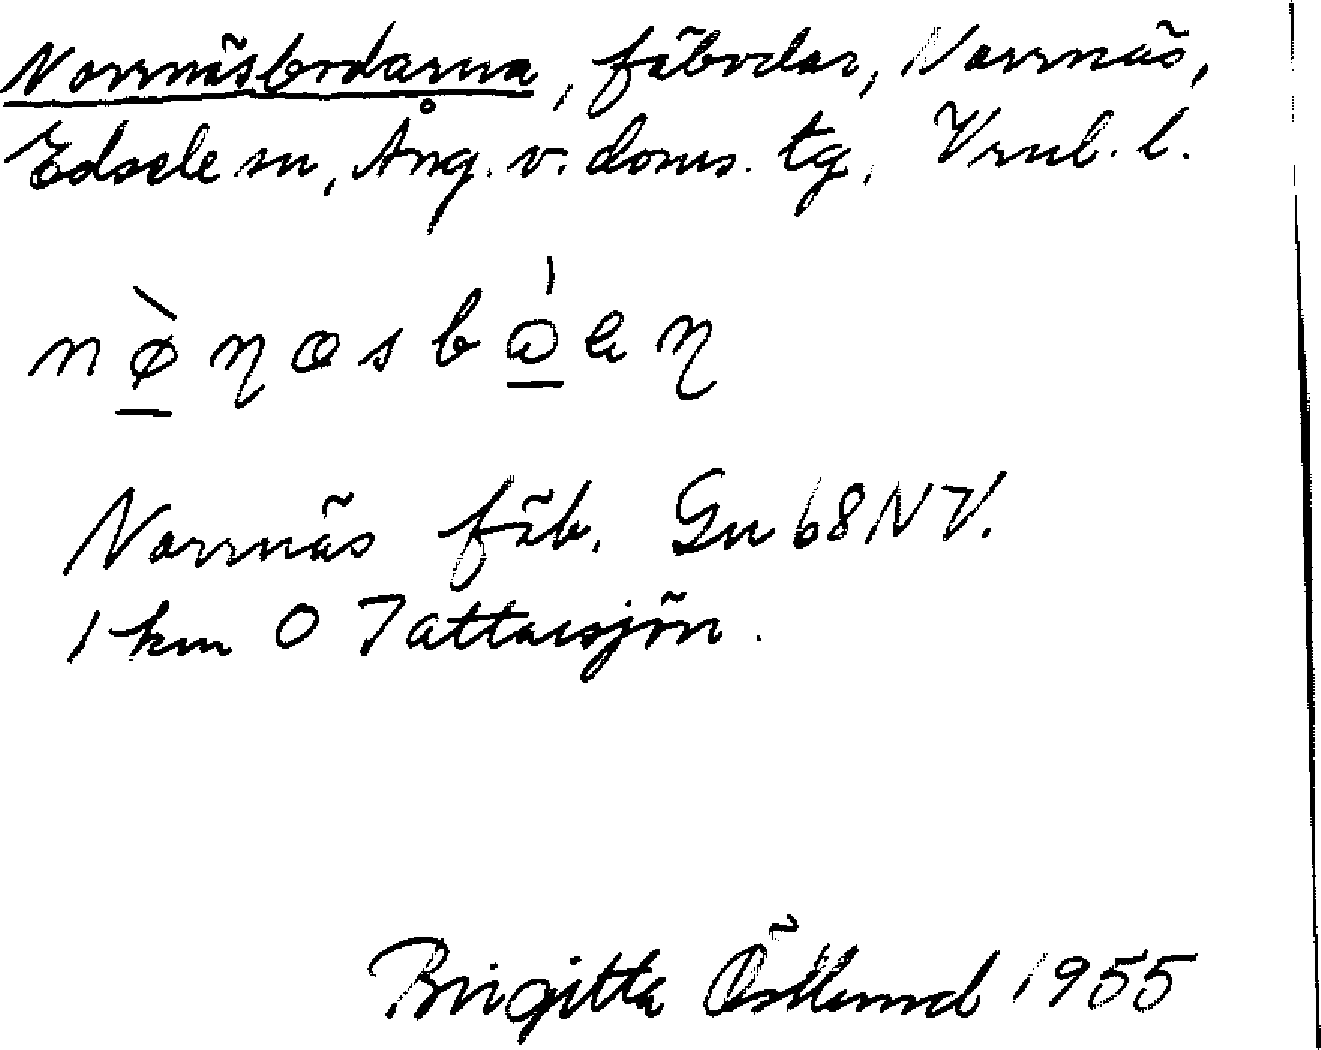 Norrnäsbodarna, fäbodar, Norrnäs,
Edsele sn, Ång. v. doms. tg, Vrnl. l.
Norrnäs fäb. Gu 68 NV.
1 km O Tattarsjön.
Birgitta Östlund 1955